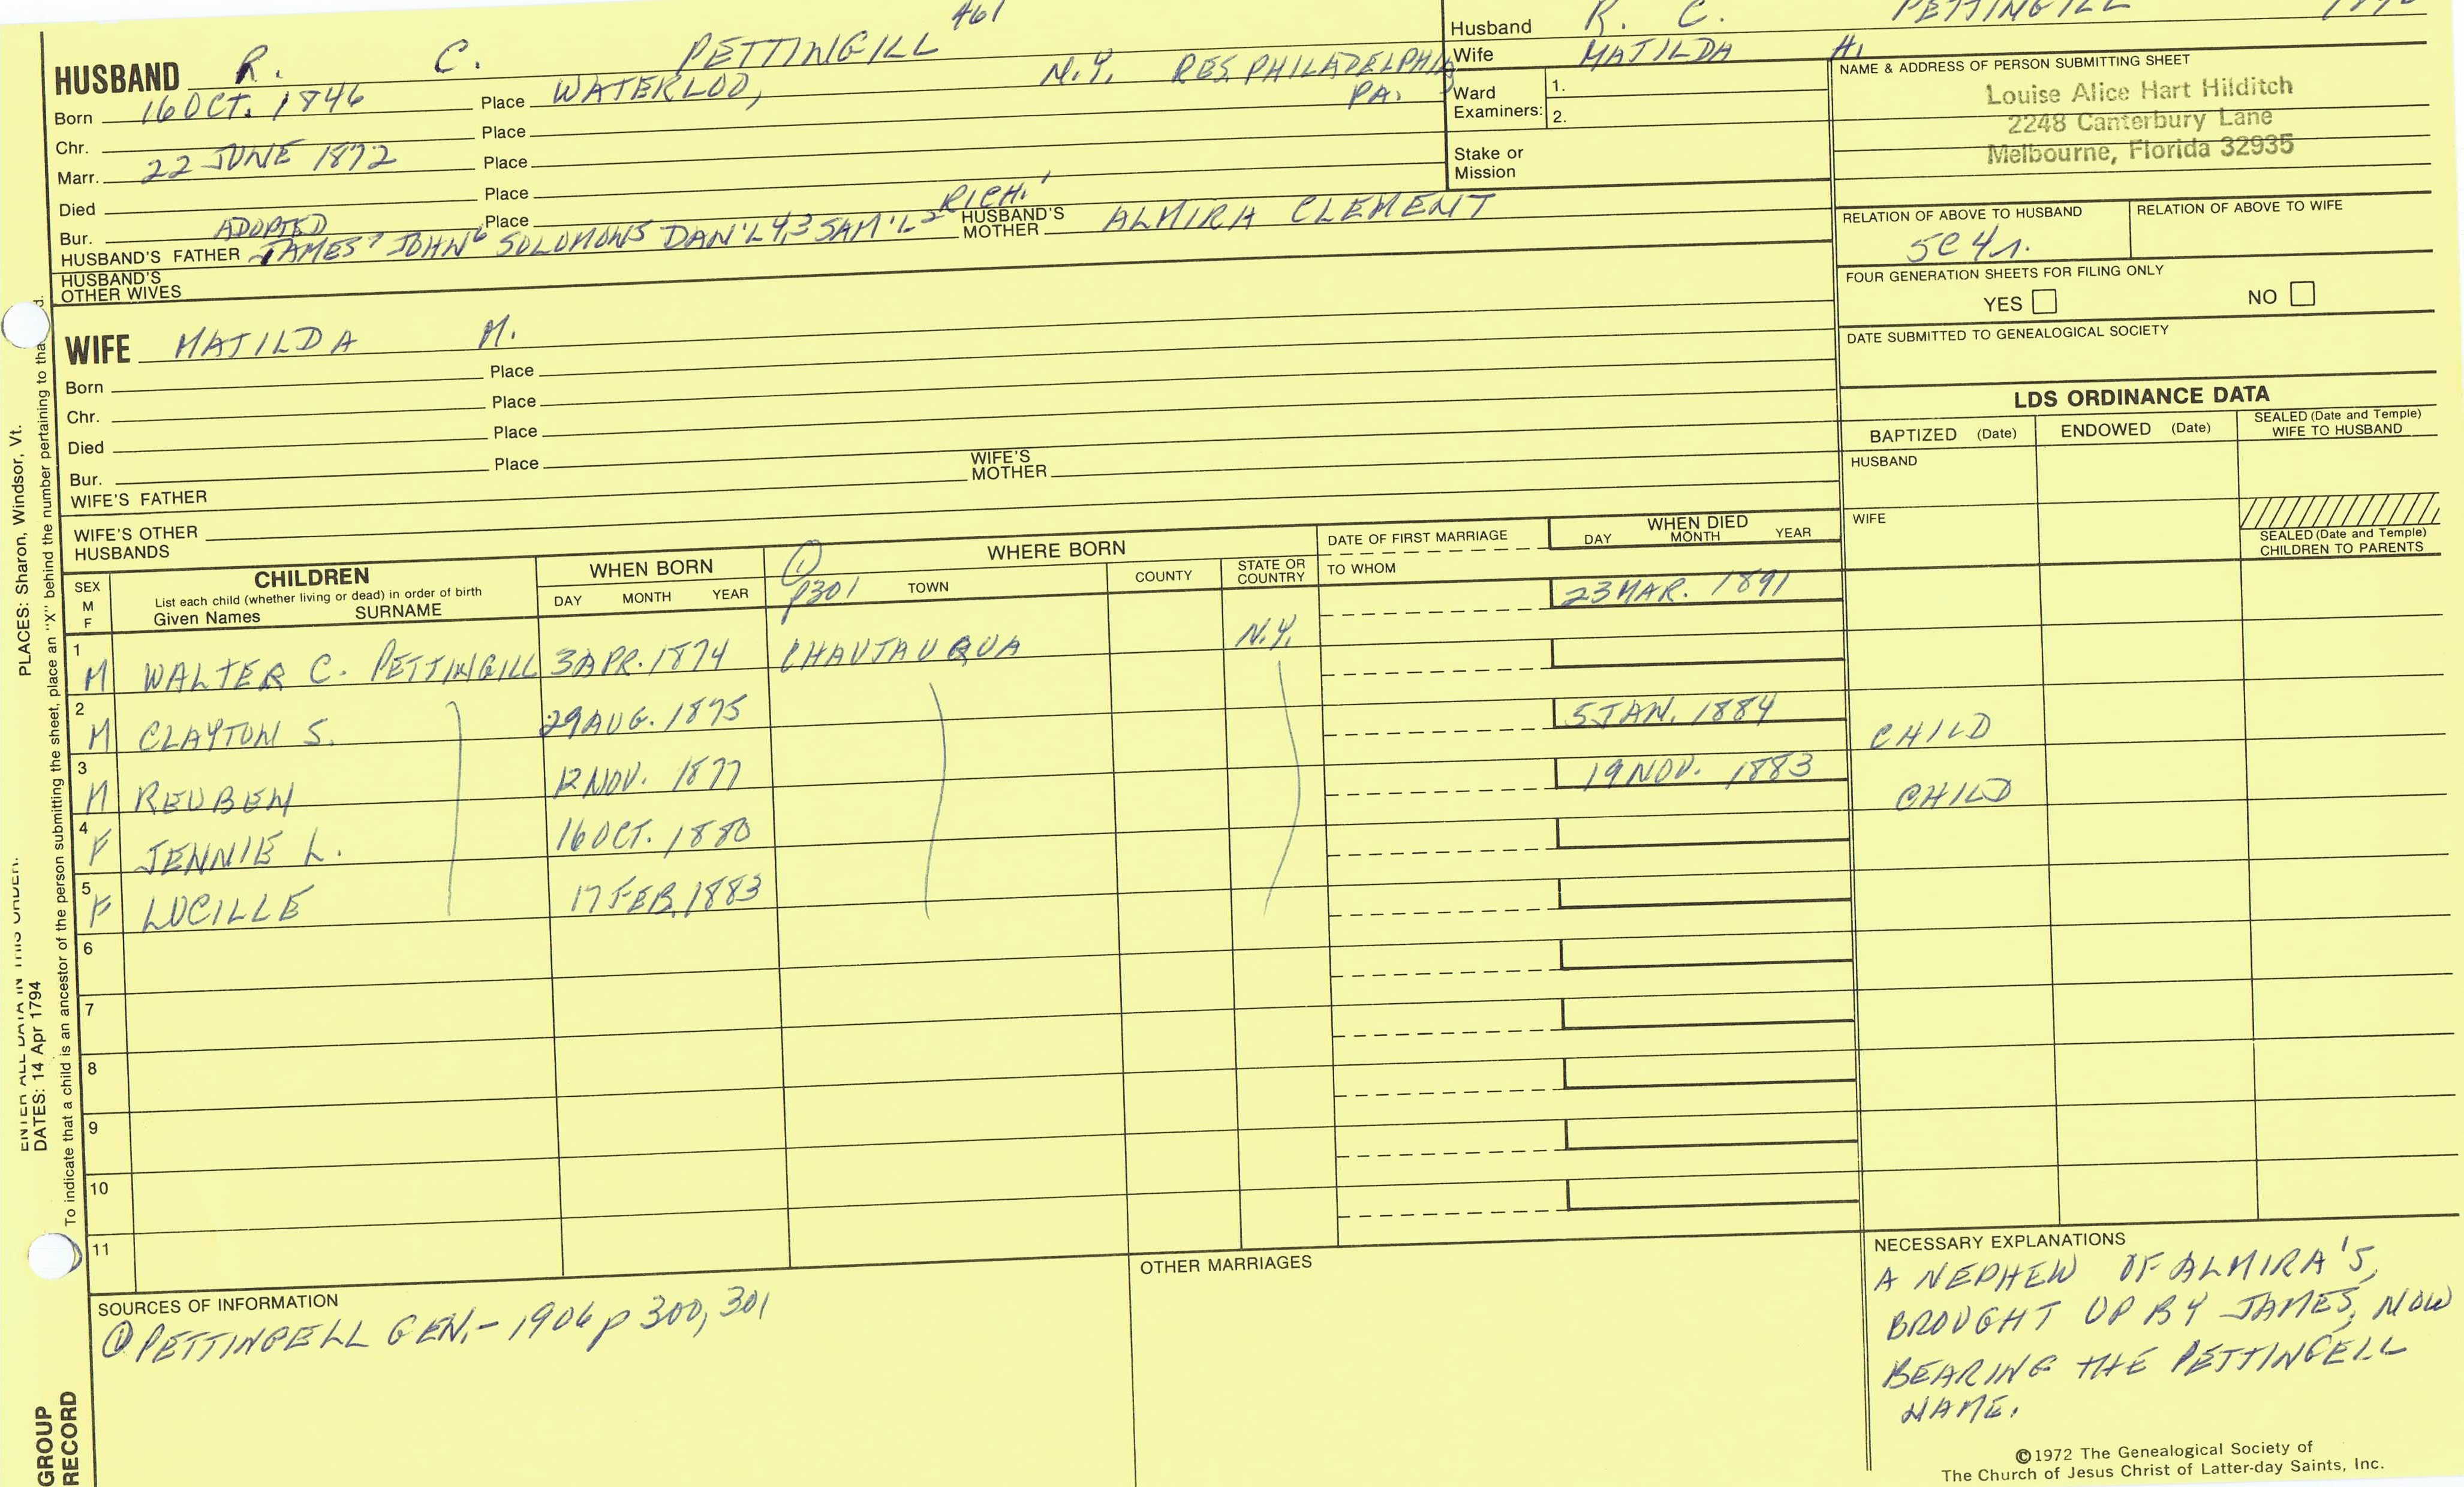 461
HUSBAND R. C. PETTINGILL
Born 16 OCT. 1846 Place WATERLOO, N.Y. RES. PHILADELPHIA, PA.
Chr. Place
Marr. 22 JUNE 1872 Place
Died Place
Bur. Place
ADOPTED RICH.'
HUSBAND'S FATHER JAMES7 JOHN6 SOLOMON5 DAN'L4,3 SAM'L2 HUSBAND'S MOTHER ALMIRA CLEMENT
HUSBAND'S OTHER WIVES
WIFE MATILDA M.
Born Place
Chr. Place
Died Place
Bur. Place
WIFE'S FATHER WIFE'S MOTHER
WIFE'S OTHER HUSBANDS
Husband R. C. PETTINGILL
Wife MATILDA
Ward Examiners: 1.
2.
Stake or Mission
NAME & ADDRESS OF PERSON SUBMITTING SHEET
Louise Alice Hart Hilditch
2248 Canterbury Lane
Melbourne, Florida 32935
RELATION OF ABOVE TO HUSBAND RELATION OF ABOVE TO WIFE
5C4r.
FOUR GENERATION SHEETS FOR FILING ONLY
YES NO
DATE SUBMITTED TO GENEALOGICAL SOCIETY
LDS ORDINANCE DATA
BAPTIZED (Date) ENDOWED (Date) SEALED (Date and Temple) WIFE TO HUSBAND
HUSBAND
WIFE
SEALED (Date and Temple) CHILDREN TO PARENTS
SEX M F
CHILDREN
List each child (whether living or dead) in order of birth
Given Names SURNAME
WHEN BORN
DAY MONTH YEAR
WHERE BORN
① p301 TOWN COUNTY STATE OR COUNTRY
DATE OF FIRST MARRIAGE
TO WHOM
WHEN DIED
DAY MONTH YEAR
1 M WALTER C. PETTINGILL 3 APR. 1874 CHAUTAUQUA N.Y. 23 MAR. 1891
2 M CLAYTON S. 29 AUG. 1875
3 M REUBEN 12 NOV. 1877 5 JAN. 1884 CHILD
4 F JENNIE L. 16 OCT. 1880 19 NOV. 1883 CHILD
5 F LUCILLE 17 FEB. 1883
6
7
8
9
10
11
SOURCES OF INFORMATION
① PETTINGELL GEN.- 1906 p 300, 301
OTHER MARRIAGES
NECESSARY EXPLANATIONS
A NEPHEW OF ALMIRA'S,
BROUGHT UP BY JAMES, NOW
BEARING THE PETTINGELL
NAME.
©1972 The Genealogical Society of
The Church of Jesus Christ of Latter-day Saints, Inc.
PLACES: Sharon, Windsor, Vt.
ENTER ALL DATA IN THIS ORDER:
DATES: 14 Apr 1794
To indicate that a child is an ancestor of the person submitting the sheet, place an "X" behind the number pertaining to that
GROUP
RECORD